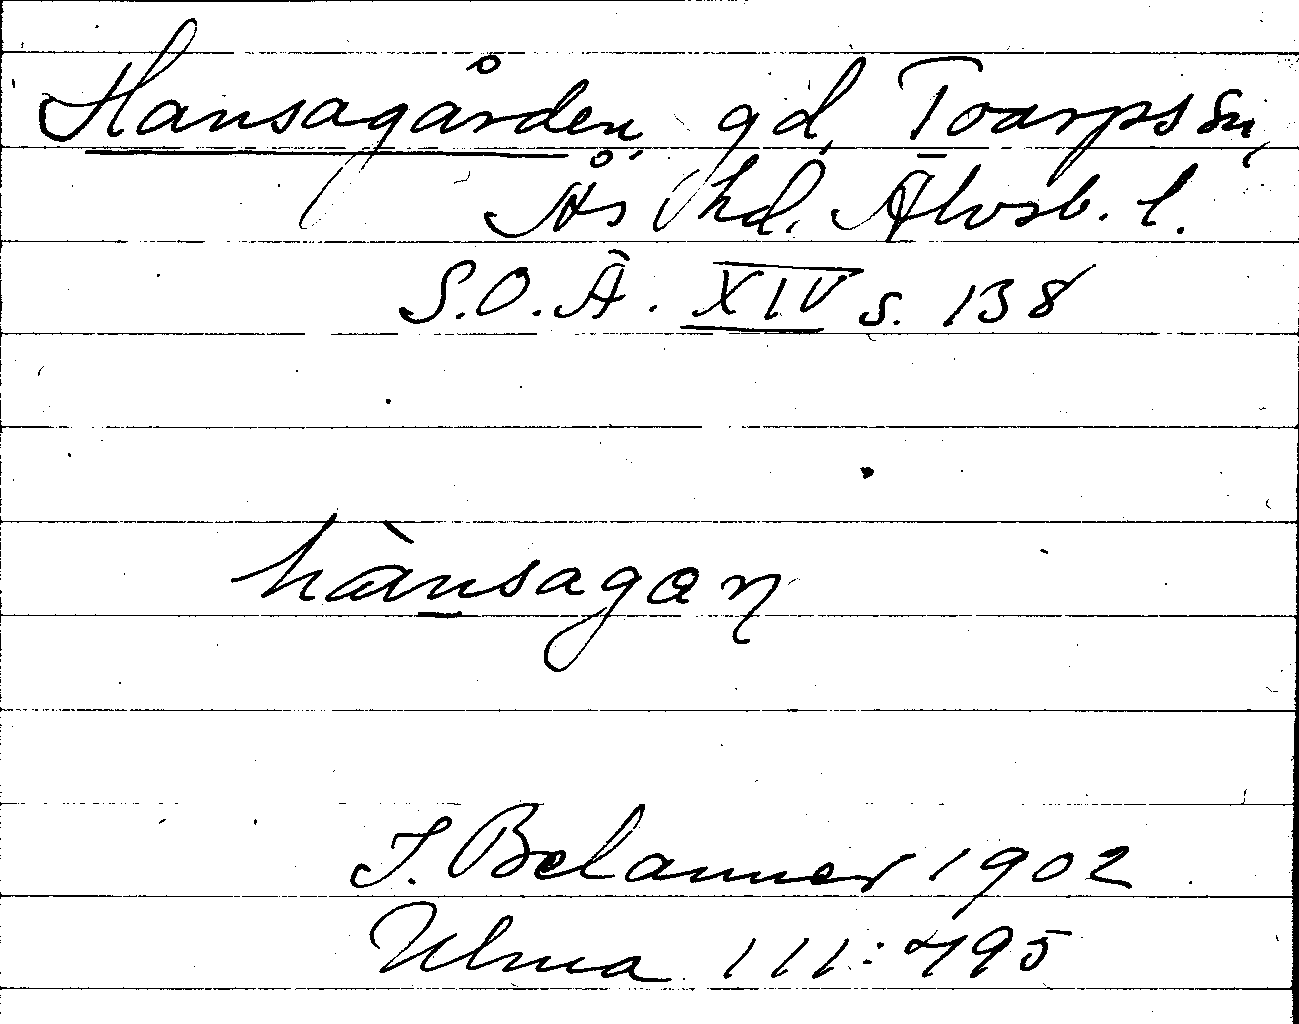 Hansagården, gd, Toarps sn,
Ås hd. Älvsb. l.
S.O.Ä. XIV s. 138
hànsagan
J. Belanner 1902
Ulma 111:495